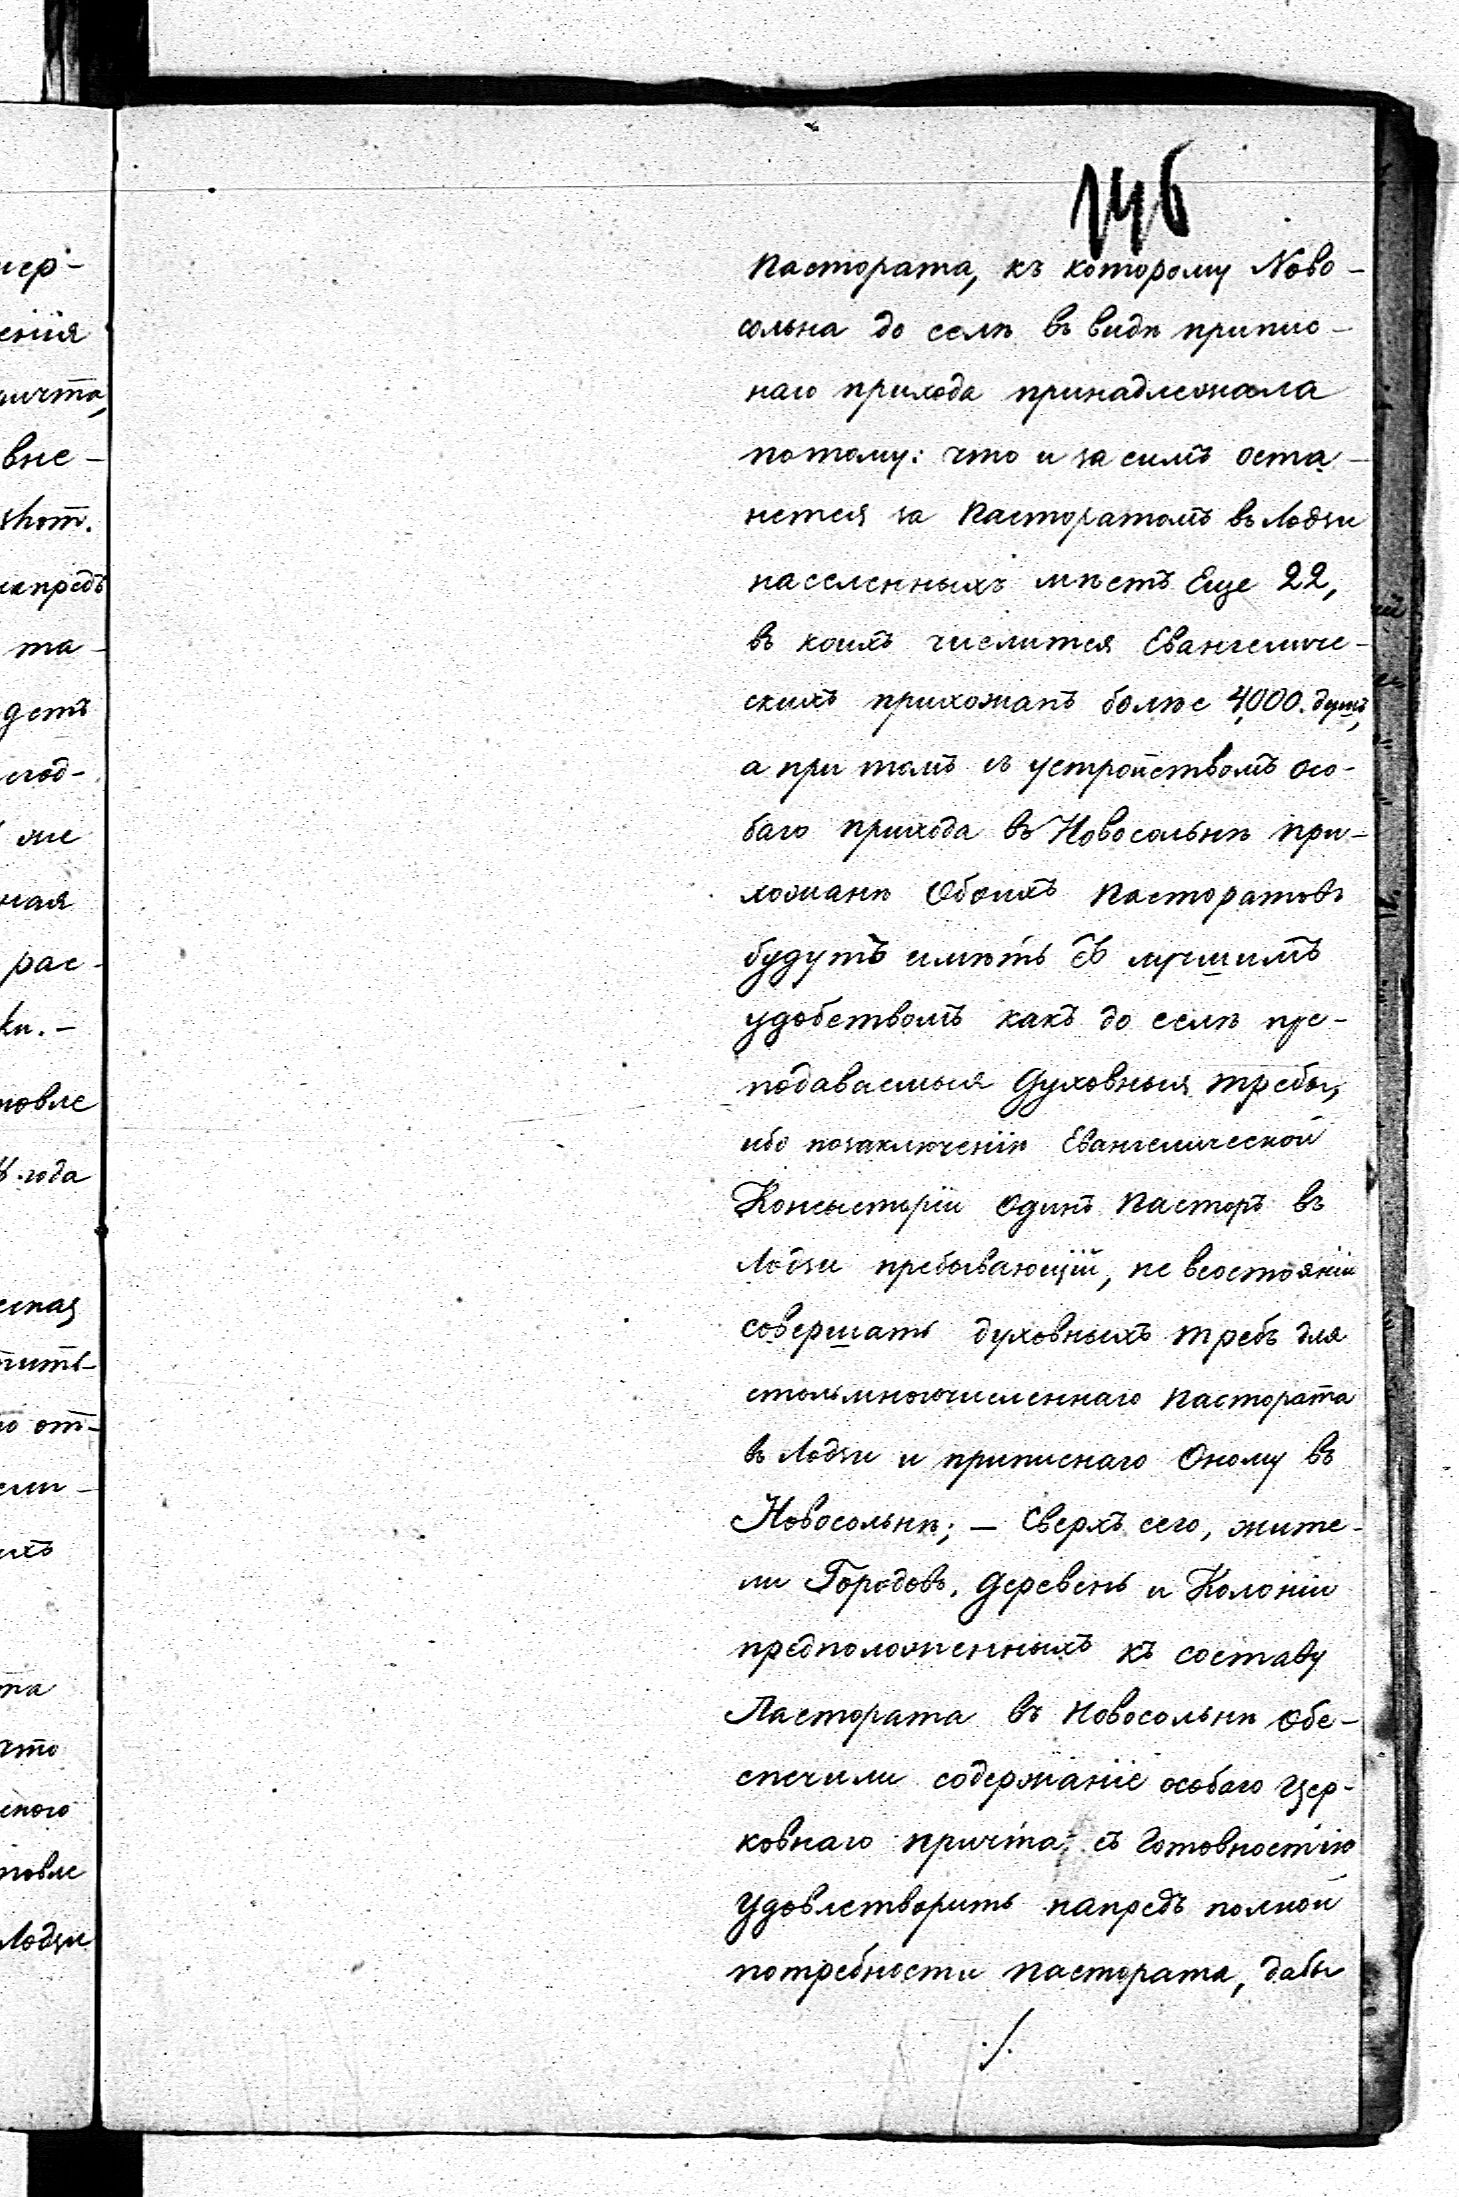 146
Пастората, къ которому Ново-
сольна до селѣ въ видѣ припис-
наго прихода принадлежала
потому: что и за симъ оста-
нется за Пасторатомъ въ Лодзи
населенныхъ мѣстъ Еще 22,
въ коихъ числится Евангеличе-
скихъ прихожанъ болѣе 4,000. душъ,
а при томъ съ устройствомъ осо-
баго прихода въ Новосольнѣ при-
хожанѣ Обоихъ Пасторатовъ
будутъ имѣть съ лучшимъ
удобствомъ какъ до селѣ пре-
подаваемыя Духовныя требы,
ибо позаключенію Евангелической
Консысторіи Одинъ Пасторъ въ
Лодзи пребывающій, не всостояніи
совершать духовныхъ требъ для
стольмногочисленнаго Пастората
въ Лодзи и приписнаго Оному въ
Новосольнѣ; — Сверхъ сего, жите-
ли Городовъ, Деревень и Колоніи
предположенныхъ къ составу
Пастората въ Новосольнѣ Обе-
спечили содержаніе особаго Цер-
ковнаго причта, съ Готовностію
Удовлетворить напредъ полной
потребности Пастората, дабы
./.
пер-
енія
ричта,
вне-
напредъ
та-
детъ
сход-
же
ная
рас-
ки. —
новле
года
еская
тить-
о от-
ихъ
та
что
скаго
новле
Лодзи